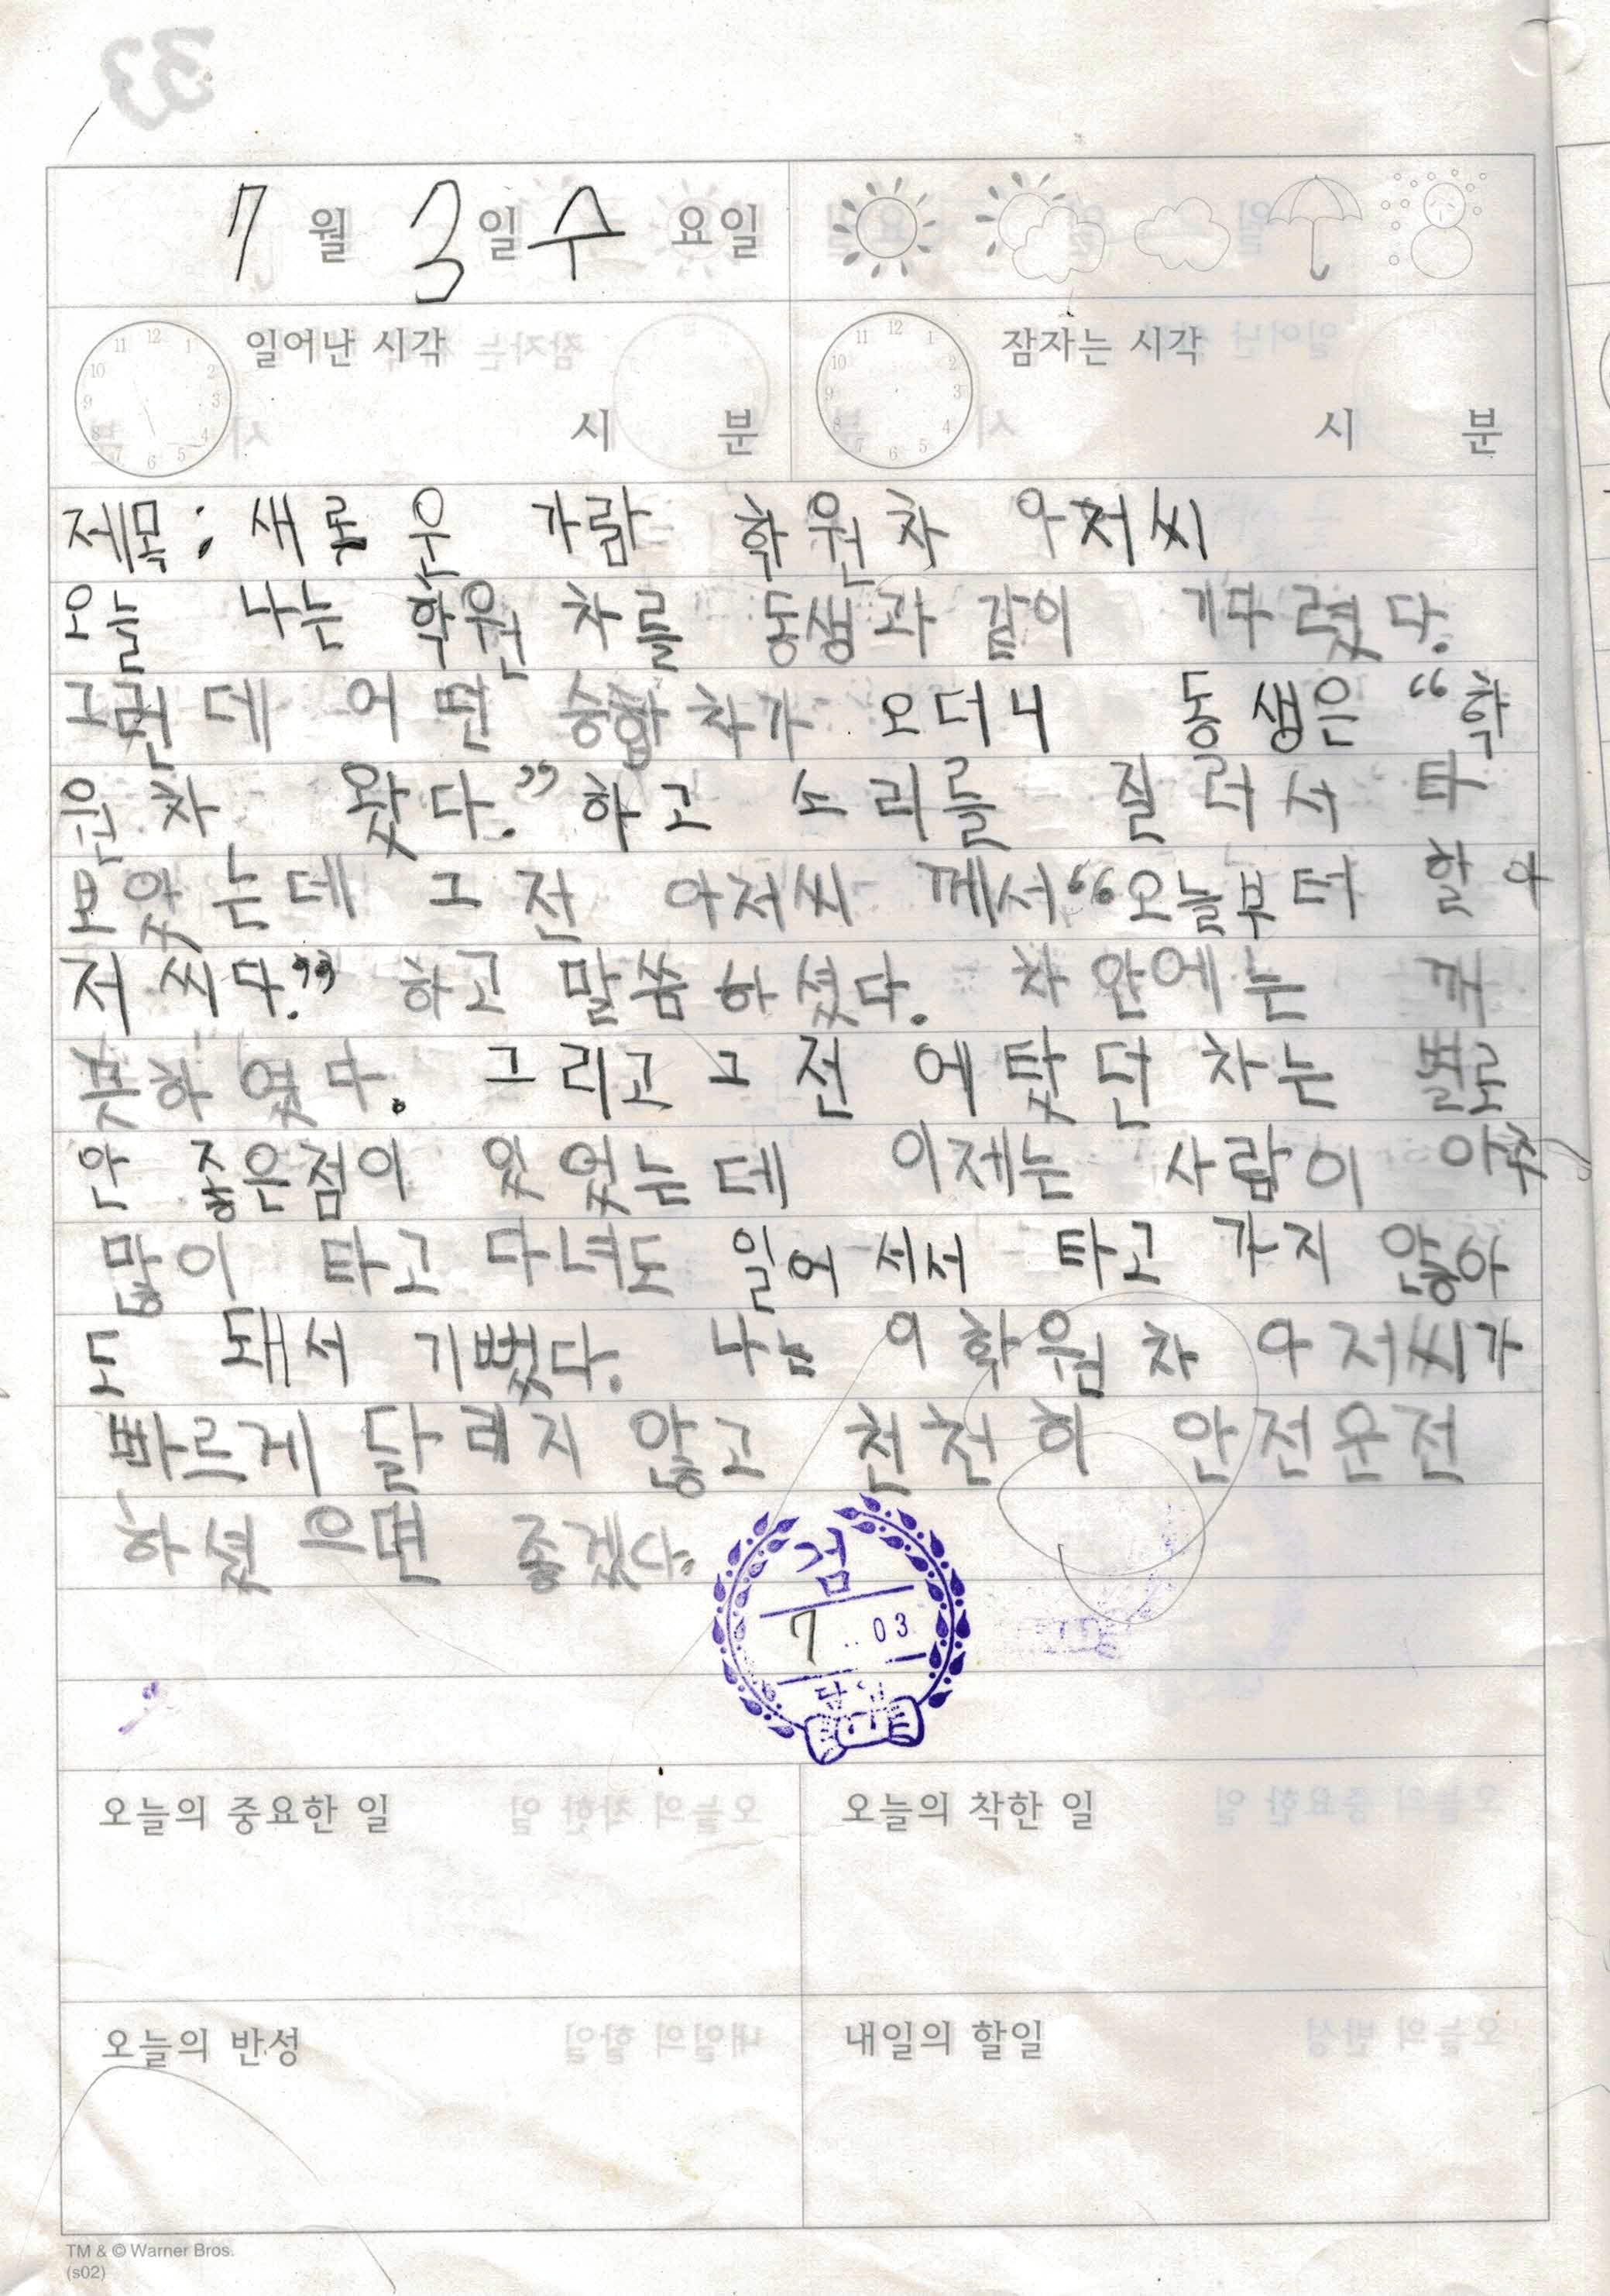 33
7월 3일 수요일
일어난 시각
시 분
잠자는 시각
시 분
제목: 새로운 가람 학원차 아저씨
오늘 나는 학원 차를 동생과 같이 기다렸다.
그런데 어떤 승합차가 오더니 동생은 “학
원 차 왔다.” 하고 소리를 질러서 타
보았는데 그 전 아저씨 께서 “오늘부터 할 아
저씨다.” 하고 말씀하셨다. 차 안에는
못하였다. 그리고 그 전에 탓던 차는 별로
안 좋은점이 있었는데 이제는 사람이 아주
많이 타고 다녀도 일어 서서 타고 가지 않아
도 돼서 기뻤다. 나는 이 학원 차 아저씨가
빠르게 달리지 않고 천천히 안전운전
하셨으면 좋겠다.
검
7 .. 03
오늘의 중요한 일
오늘의 착한 일
오늘의 반성
내일의 할일
TM & © Warner Bros.
(s02)